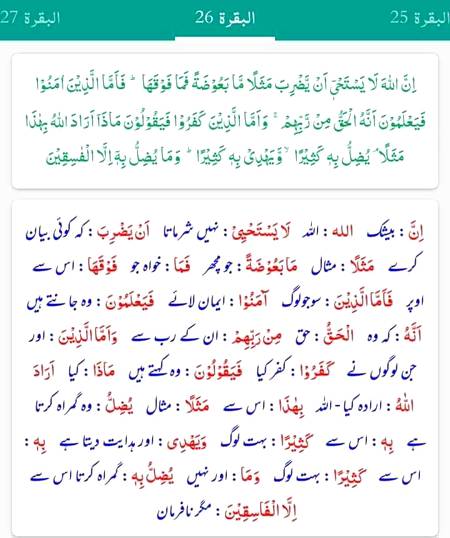 البقرة 25 البقرة 26 البقرة 27
اِنَّ اللّٰهَ لَا يَسْتَحْيٖٓ اَنْ يَّضْرِبَ مَثَلًا مَّا بَعُوْضَةً فَمَا فَوْقَهَا ؕ فَاَمَّا الَّذِيْنَ اٰمَنُوْا
فَيَعْلَمُوْنَ اَنَّهُ الْحَقُّ مِنْ رَّبِّهِمْ ۚ وَاَمَّا الَّذِيْنَ كَفَرُوْا فَيَقُوْلُوْنَ مَاذَآ اَرَادَ اللّٰهُ بِهٰذَا
مَثَلًا ۘ يُضِلُّ بِهٖ كَثِيْرًا ۙ وَّيَهْدِيْ بِهٖ كَثِيْرًا ؕ وَمَا يُضِلُّ بِهٖٓ اِلَّا الْفٰسِقِيْنَ
اِنَّ : بیشک الله : اللہ لَا يَسْتَحْيِیْ : نہیں شرماتا اَنْ يَضْرِبَ : کہ کوئی بیان
کرے مَثَلًا : مثال مَا بَعُوْضَةً : جو مچھر فَمَا : خواہ جو فَوْقَهَا : اس سے
اوپر فَاَمَّا الَّذِيْنَ : سوجولوگ آمَنُوْا : ایمان لائے فَيَعْلَمُوْنَ : وہ جانتے ہیں
اَنَّهُ : کہ وہ الْحَقُّ : حق مِنْ رَبِّهِمْ : ان کے رب سے وَاَمَّا الَّذِيْنَ : اور
جن لوگوں نے كَفَرُوْا : کفر کیا فَيَقُوْلُوْنَ : وہ کہتے ہیں مَاذَا : کیا اَرَادَ
اللّٰهُ : ارادہ کیا - اللہ بِهٰذَا : اس سے مَثَلًا : مثال يُضِلُّ : وہ گمراہ کرتا
ہے بِهٖ : اس سے كَثِيْرًا : بہت لوگ وَيَهْدِی : اور ہدایت دیتا ہے بِهٖ :
اس سے كَثِيْرًا : بہت لوگ وَمَا : اور نہیں يُضِلُّ بِهٖ : گمراہ کرتا اس سے
اِلَّا الْفَاسِقِيْنَ : مگر نافرمان